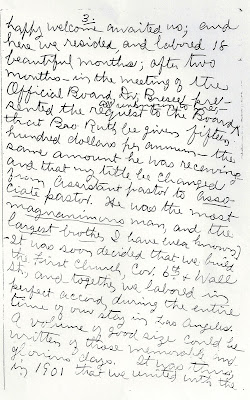 3-
happy welcome awaited us; and
here we resided and labored 18
beautiful months; after two
months - in the meeting of the
Official Board, Dr, Bresee pre-
sented the request to the Board,
that Bro Ruth be given fifteen
hundred dollars per annum - the
same amount he was receiving
and that my title be changed
from Assistant pastor to Asso-
ciate pastor. He was the most
magnanimous man, and the
largest brother I have ever known;
It was soon decided that we build
the First Church, Cor. 6th & Wall
St, and together we labored in
perfect accord during the entire
time of our stay in Los Angeles.
A volume of good size could be
written of those memorable and
glorious days. It was
in 1901 that we united with the